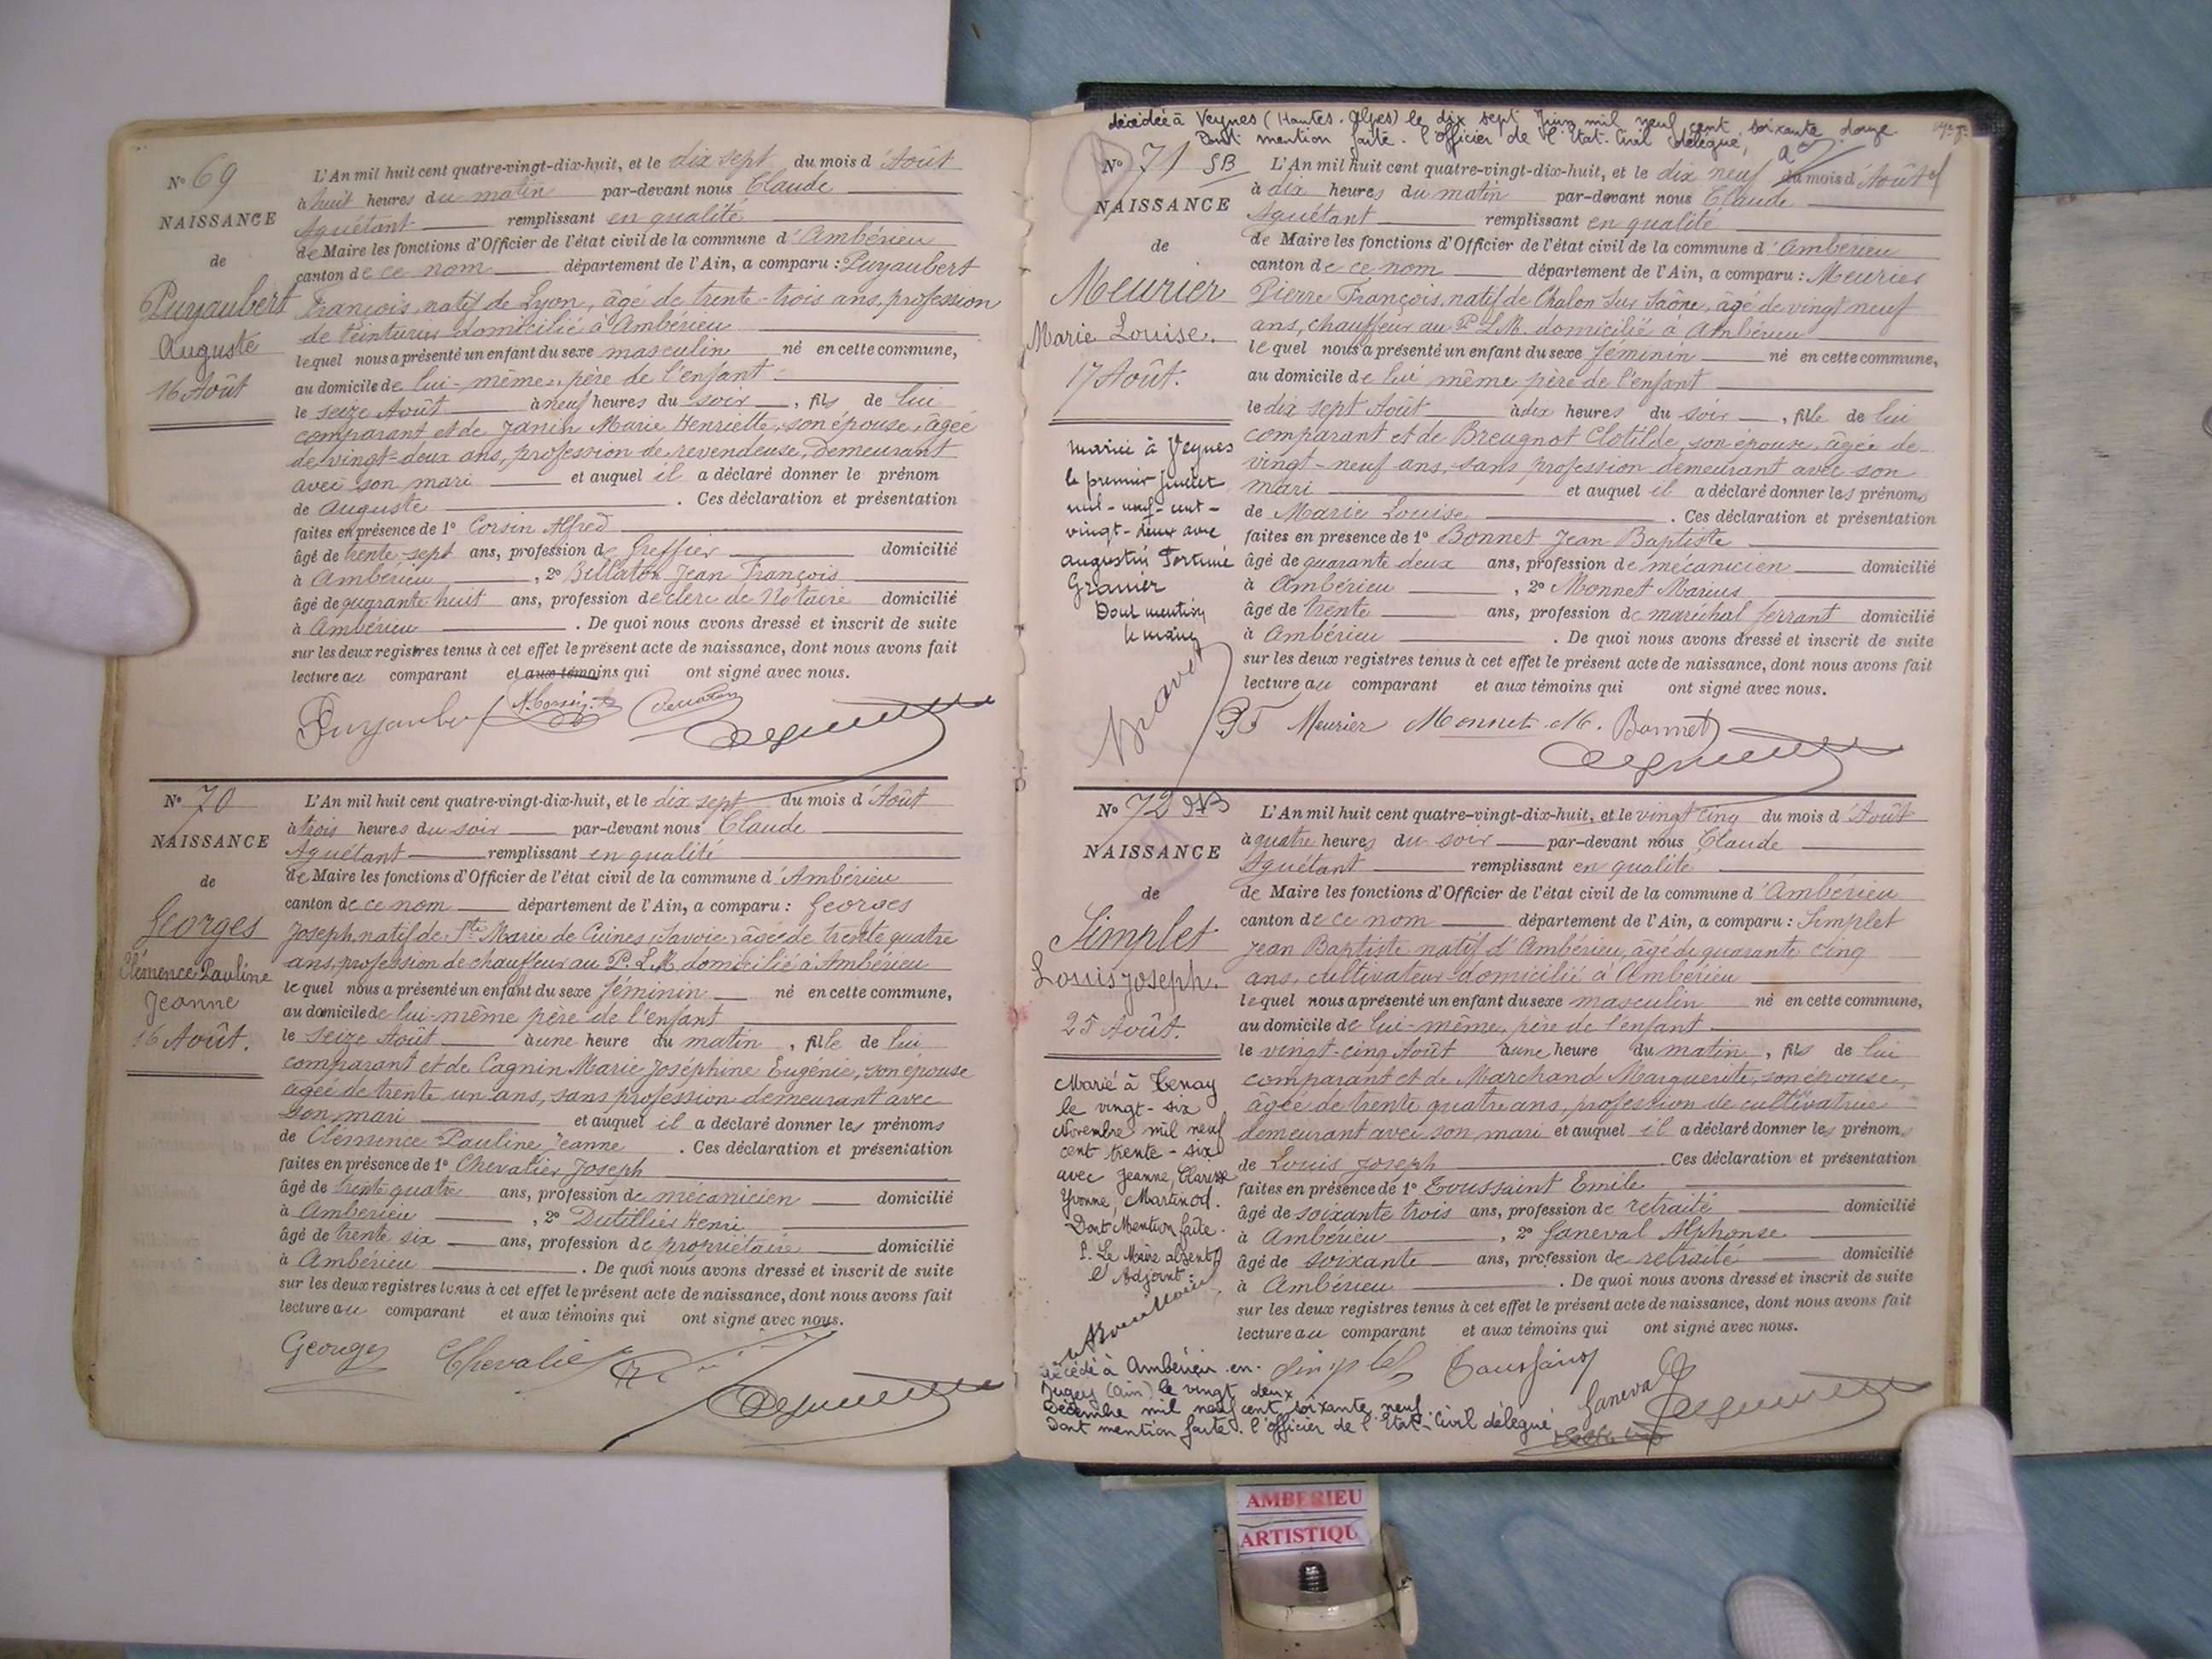 Nº 69
NAISSANCE
de
Puyaubert
Auguste
16 Août
L'An mil huit cent quatre-vingt-dix-huit, et le dix sept du mois d'Août
à huit heures du matin par-devant nous Claude
Aguétant remplissant en qualité
de Maire les fonctions d'Officier de l'état civil de la commune d'Ambérieu
canton de ce nom département de l'Ain, a comparu : Puyaubert
François, natif de Lyon, âgé de trente-trois ans, profession
de teinturier domicilié à Ambérieu
lequel nous a présenté un enfant du sexe masculin né en cette commune,
au domicile de lui-même, père de l'enfant
le seize Août à neuf heures du soir, fils de lui
comparant et de Janin Marie Henriette, son épouse, âgée
de vingt-deux ans, profession de revendeuse, demeurant
avec son mari et auquel il a déclaré donner le prénom
de Auguste . Ces déclaration et présentation
faites en présence de 1º Corsin Alfred
âgé de trente-sept ans, profession de Greffier domicilié
à Ambérieu , 2º Bellaton Jean François
âgé de quarante huit ans, profession de clerc de Notaire domicilié
à Ambérieu . De quoi nous avons dressé et inscrit de suite
sur les deux registres tenus à cet effet le présent acte de naissance, dont nous avons fait
lecture au comparant et aux témoins qui ont signé avec nous.
Puyaubert A. Corsin
Nº 70
NAISSANCE
de
Georges
Clémence Pauline
Jeanne
16 Août.
L'An mil huit cent quatre-vingt-dix-huit, et le dix sept du mois d'Août
à trois heures du soir par-devant nous Claude
Aguétant remplissant en qualité
de Maire les fonctions d'Officier de l'état civil de la commune d'Ambérieu
canton de ce nom département de l'Ain, a comparu : Georges
Joseph, natif de Ste Marie de Cuines (Savoie) âgée de trente quatre
ans, profession de chauffeur au P. L. M. domicilié à Ambérieu
lequel nous a présenté un enfant du sexe féminin né en cette commune,
au domicile de lui-même père de l'enfant
le seize Août à une heure du matin, fille de lui
comparant et de Cagnin Marie Joséphine Eugénie, son épouse
agée de trente un ans, sans profession demeurant avec
son mari et auquel il a déclaré donner les prénoms
de Clémence Pauline Jeanne . Ces déclaration et présentation
faites en présence de 1º Chevalier Joseph
âgé de trente quatre ans, profession de mécanicien domicilié
à Ambérieu , 2º Dutillier Henri
âgé de trente six ans, profession de propriétaire domicilié
à Ambérieu . De quoi nous avons dressé et inscrit de suite
sur les deux registres tenus à cet effet le présent acte de naissance, dont nous avons fait
lecture au comparant et aux témoins qui ont signé avec nous.
Georges Chevalier
décédée à Veynes (Hautes-Alpes) le dix sept Juin mil neuf cent soixante douze
Dont mention faite. l'officier de l'Etat-Civil délégué,
Nº 71 SB
NAISSANCE
de
Meurier
Marie Louise.
17 Août.
mariée à Veynes
le premier juillet
mil-neuf-cent-
vingt-deux avec
Augustin Fortuné
Granier
Dont mention
le maire
L'An mil huit cent quatre-vingt-dix-huit, et le dix neuf du mois d'Août
à dix heures du matin par-devant nous Claude
Aguétant remplissant en qualité
de Maire les fonctions d'Officier de l'état civil de la commune d'Ambérieu
canton de ce nom département de l'Ain, a comparu : Meurier
Pierre François, natif de Chalon sur Saône, âgé de vingt neuf
ans, chauffeur au P. L. M. domicilié à Ambérieu
lequel nous a présenté un enfant du sexe féminin né en cette commune,
au domicile de lui même père de l'enfant
le dix sept Août à dix heures du soir, fille de lui
comparant et de Breugnot Clotilde, son épouse, âgée de
vingt-neuf ans, sans profession demeurant avec son
mari et auquel il a déclaré donner les prénoms
de Marie Louise . Ces déclaration et présentation
faites en présence de 1º Bonnet Jean Baptiste
âgé de quarante deux ans, profession de mécanicien domicilié
à Ambérieu , 2º Monnet Marius
âgé de trente ans, profession de maréchal ferrant domicilié
à Ambérieu . De quoi nous avons dressé et inscrit de suite
sur les deux registres tenus à cet effet le présent acte de naissance, dont nous avons fait
lecture au comparant et aux témoins qui ont signé avec nous.
Meurier Monnet M. Bonnet
Nº 72
NAISSANCE
de
Simplet
Louis Joseph.
25 Août.
Marié à Tenay
le vingt-six
Novembre mil neuf
cent trente-six
avec Jeanne, Clarisse
Yvonne, Martinod.
Dont Mention faite.
P. Le Maire absent
L'Adjoint :
L'An mil huit cent quatre-vingt-dix-huit, et le vingt cinq du mois d'Août
à quatre heures du soir par-devant nous Claude
Aguétant remplissant en qualité
de Maire les fonctions d'Officier de l'état civil de la commune d'Ambérieu
canton de ce nom département de l'Ain, a comparu : Simplet
Jean Baptiste natif d'Ambérieu, âgé de quarante cinq
ans, cultivateur domicilié à Ambérieu
lequel nous a présenté un enfant du sexe masculin né en cette commune,
au domicile de lui-même, père de l'enfant
le vingt-cinq Août à une heure du matin, fils de lui
comparant et de Marchand Marguerite, son épouse,
âgée de trente quatre ans, profession de cultivatrice
demeurant avec son mari et auquel il a déclaré donner les prénoms
de Louis Joseph . Ces déclaration et présentation
faites en présence de 1º Toussaint Emile
âgé de soixante trois ans, profession de retraité domicilié
à Ambérieu , 2º Ganeval Alphonse
âgé de soixante ans, profession de retraité domicilié
à Ambérieu . De quoi nous avons dressé et inscrit de suite
sur les deux registres tenus à cet effet le présent acte de naissance, dont nous avons fait
lecture au comparant et aux témoins qui ont signé avec nous.
Simplet Toussaint Ganeval
décédé à Ambérieu en
Bugey (Ain) le vingt deux
Décembre mil neuf cent soixante neuf.
Dont mention faite. l'officier de l'Etat-Civil délégué
AMBERIEU
ARTISTIQU